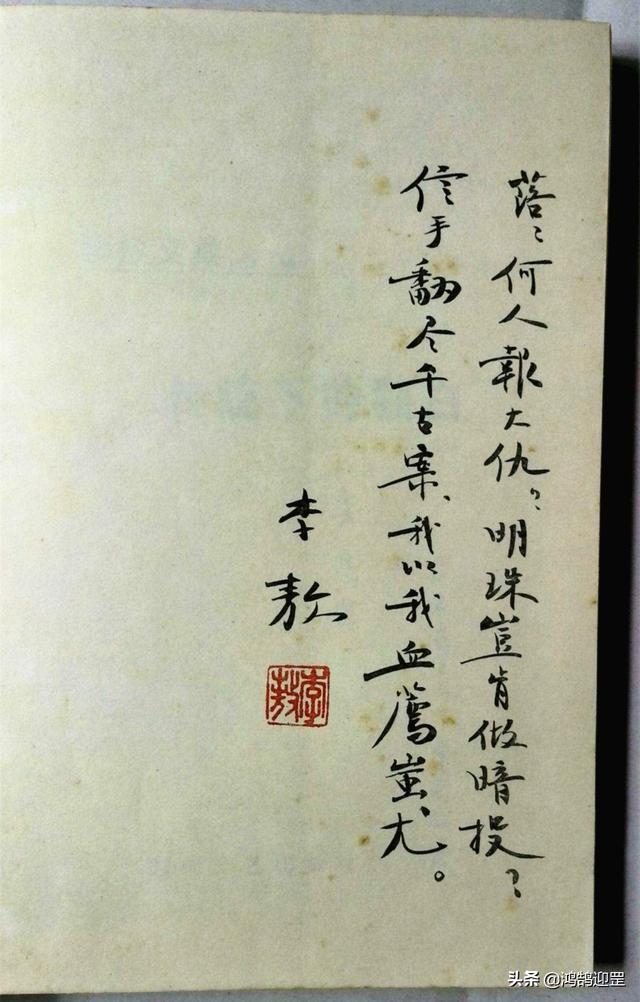 落々何人報大仇？明珠豈肯做暗投？
信手翻尽千古案、我以我血薦蚩尤。
李敖
李敖
头条 @鸿鹄迎罡